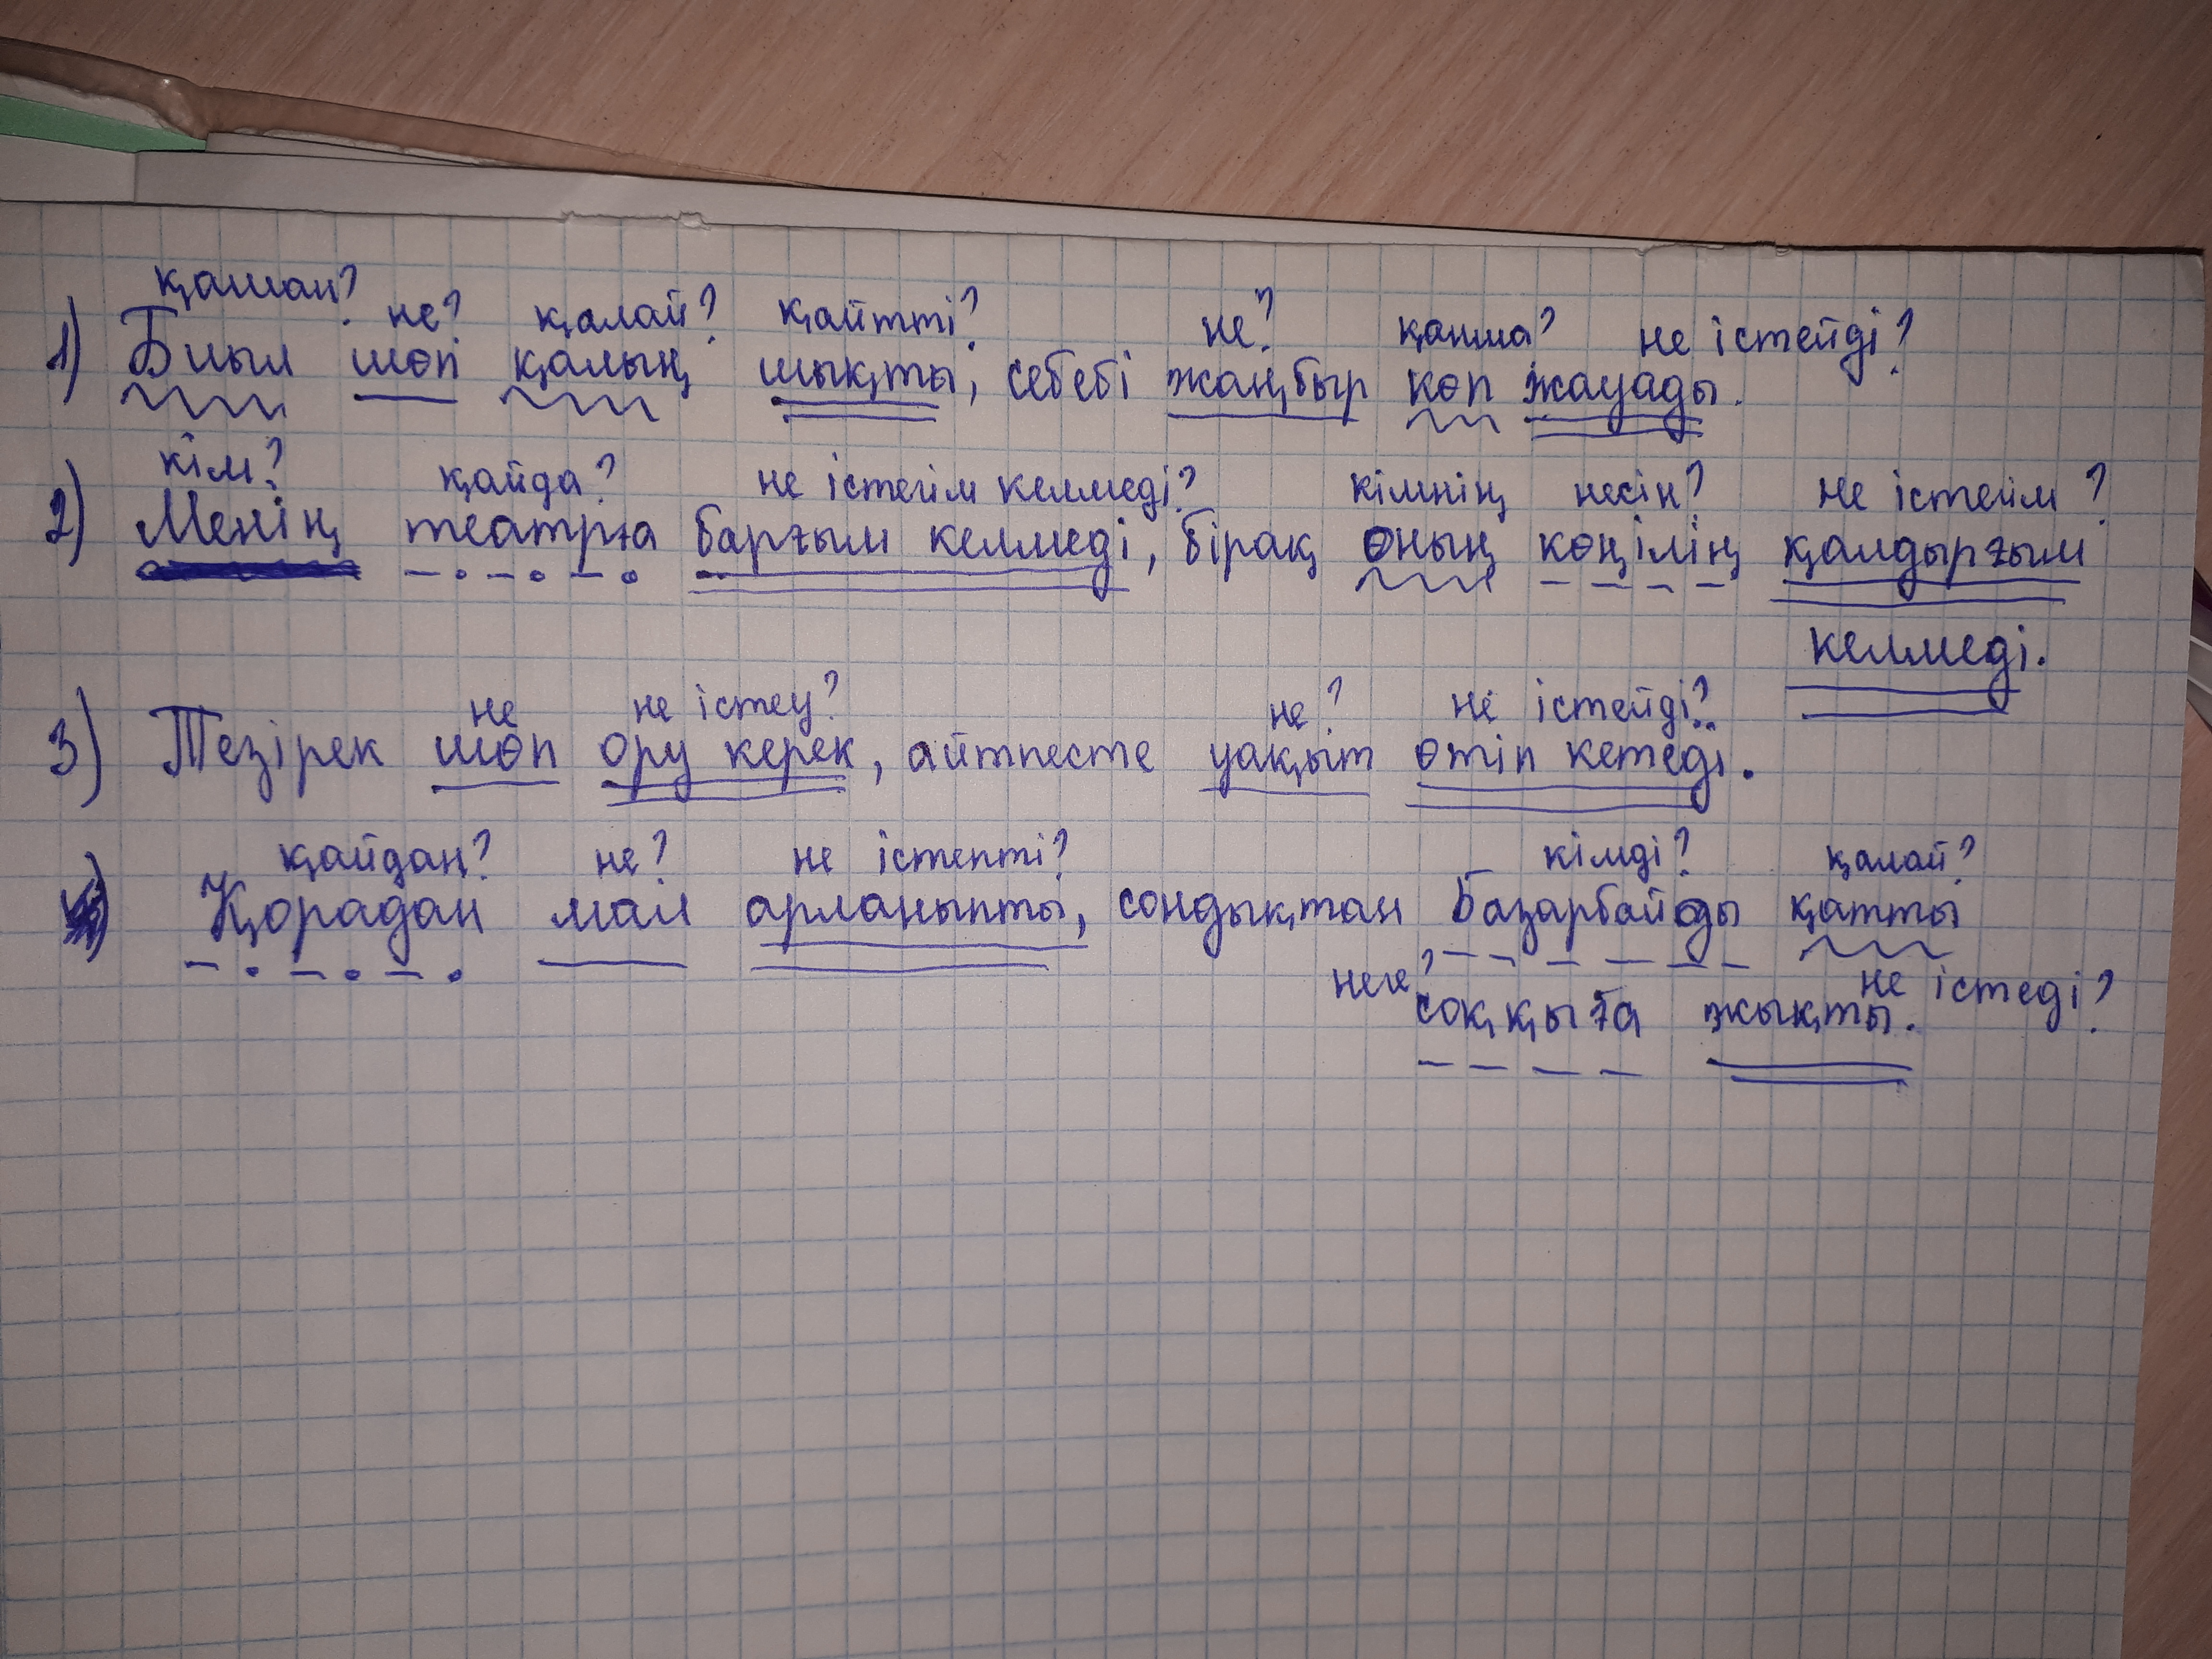 қашан? не? қалай? қайтті? не? қанша? не істейді?
1) Биыл шөп қалың шықты, себебі жаңбыр көп жауады.
кім? қайда? не істегім келмеді? кімнің несін? не істегім?
2) Менің театрға барғым келмеді, бірақ оның көңілің қалдырғым
келмеді.
не не істеу? не? не істейді?
3) Тезірек шөп ору керек, айтпесте уақыт өтіп кетеді.
қайдан? не? не істепті? кімді? қалай?
Қорадан мал арланыпты, сондықтан Базарбайды қатты
неге? не істеді?
соққыға жықты.